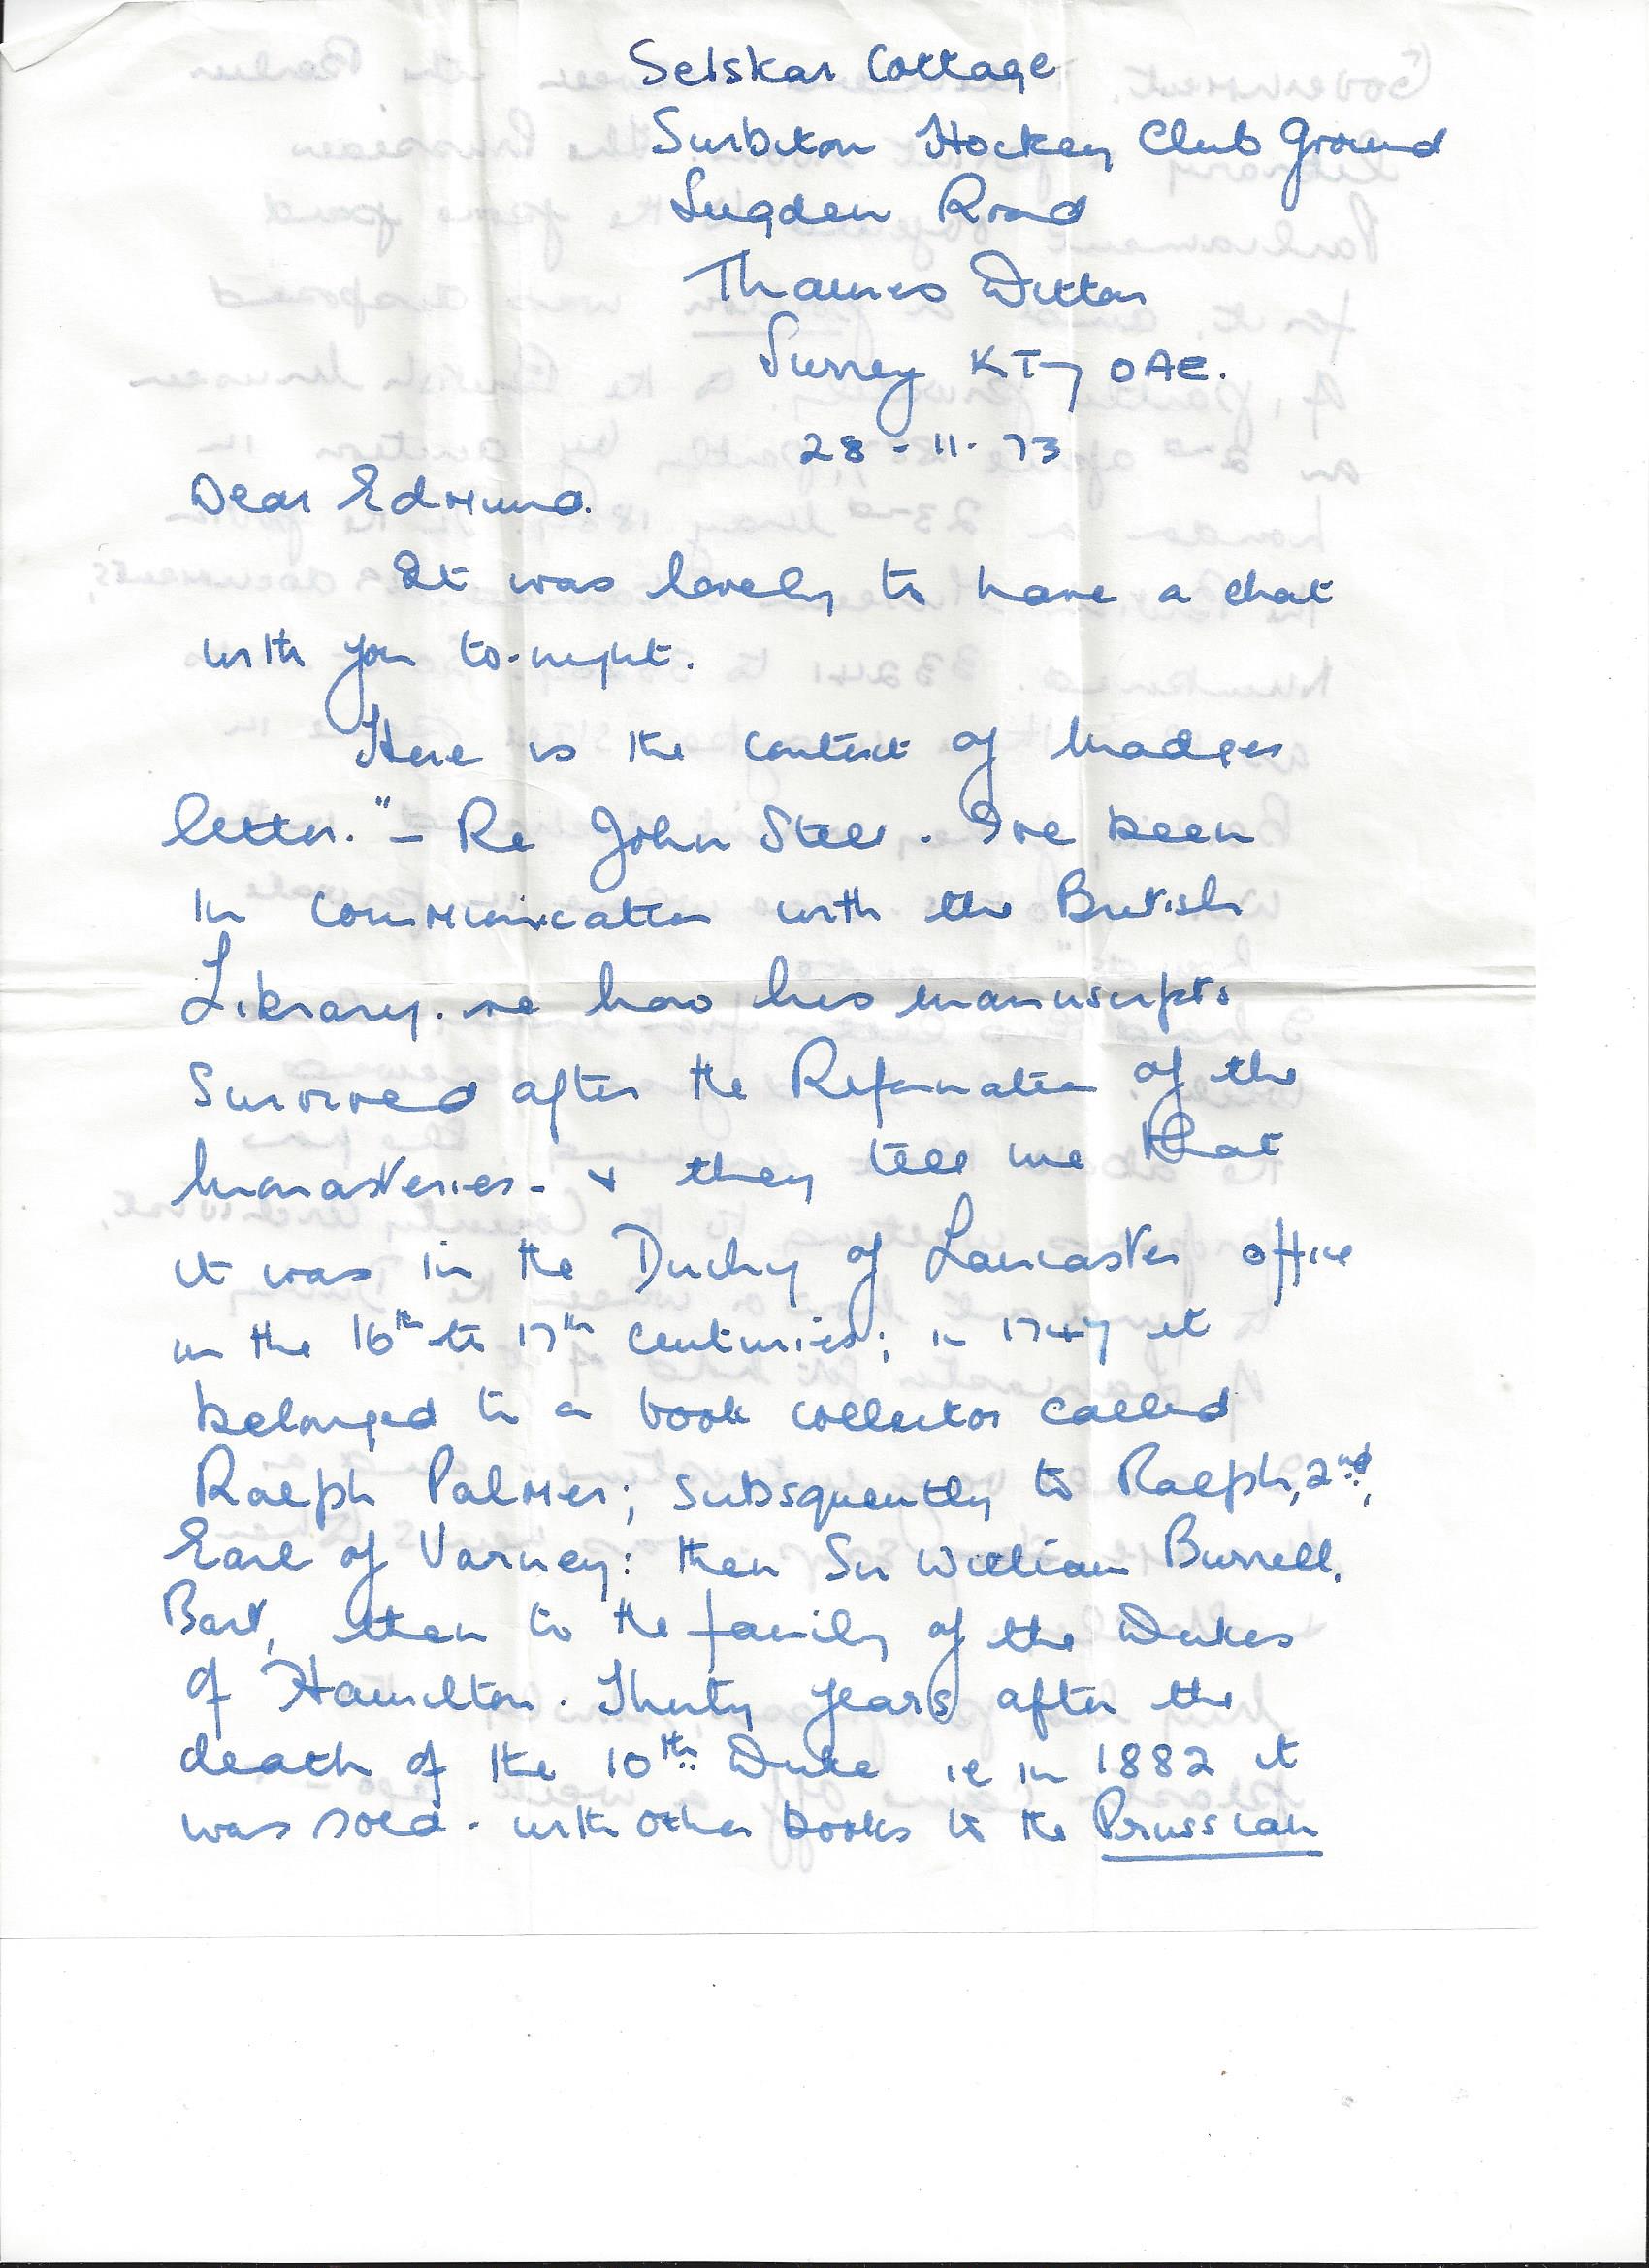 Selskar Cottage
Surbiton Hockey Club Ground
Sugden Road
Thames Ditton
Surrey KT7 0AE.
28-11-73
Dear Edmund.
It was lovely to have a chat
with you to-night.
Here is the context of Madges
letter. "– Re John Steer. I've been
in communication with the British
Library. re how his manuscripts
survived after the Reformation of the
Monasteries – & they tell me that
it was in the Duchy of Lancaster office
in the 16th to 17th centuries; in 1747 it
belonged to a book collector called
Ralph Palmer; subsquently to Ralph, 2nd,
Earl of Varney: then Sir William Burrell.
Bart, then to the family of the Dukes
of Hamilton. Thirty years after the
death of the 10th Duke ie in 1882 it
was sold – with other books to the Prussian